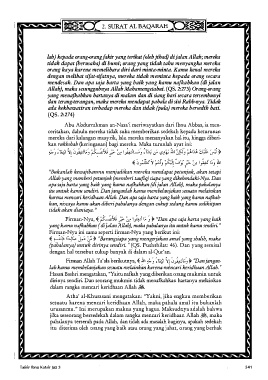 2. SURAT AL BAQARAH
lah) kepada orang-orang fakir yang terikat (oleh jihad) di jalan Allah; mereka
tidak dapat (berusaha) di bumi, orang yang tidak tahu menyangka mereka
orang kaya karena memelihara diri dari minta-minta. Kamu kenal mereka
dengan melihat sifat-sifatnya, mereka tidak meminta kepada orang secara
mendesak. Dan apa saja harta yang baik yang kamu nafkahkan (di jalan
Allah), maka sesungguhnya Allah Mahamengetahui. (QS. 2:273) Orang-orang
yang menafkahkan hartanya di malam dan di siang hari secara tersembunyi
dan terang-terangan, maka mereka mendapat pahala di sisi Rabb-nya. Tidak
ada kekhawatiran terhadap mereka dan tidak (pula) mereka bersedih hati.
(QS. 2:274)
Abu Abdurrahman an-Nasa'i meriwayatkan dari Ibnu Abbas, ia men-
ceritakan, dahulu mereka tidak suka memberikan sedekah kepada keturunan
mereka dari kalangan musyrik, lalu mereka menanyakan hal itu, hingga diberi-
kan rukhshah (keringanan) bagi mereka. Maka turunlah ayat ini:
"Bukanlah kewajibanmu menjadikan mereka mendapat petunjuk, akan tetapi
Allah yang memberi petunjuk (memberi taufiq) siapa yang dikehendaki-Nya. Dan
apa saja harta yang baik yang kamu nafkahkan (di jalan Allah), maka pahalanya
itu untuk kamu sendiri. Dan janganlah kamu membelanjakan sesuatu melainkan
karena mencari keridhaan Allah. Dan apa saja harta yang baik yang kamu nafkah-
kan, niscaya kamu akan diberi pahalanya dengan cukup sedang kamu sedikitpun
tidak akan dianiaya."
"Dan apa saja harta yang baik
yang kamu nafkahkan (di jalan Allah), maka pahalanya itu untuk kamu sendiri."
Firman-Nya ini sama seperti firman-Nya yang berikut ini:
"Barangsiapa yang mengerjakan amal yang shalih, maka
(pahalanya) untuk dirinya sendiri." (QS. Fushshilat: 46). Dan yang senada
dengan hal tersebut cukup banyak di dalam al-Qur'an.
"Dan jangan-
lah kamu membelanjakan sesuatu melainkan karena mencari keridhaan Allah."
Hasan Basri mengatakan, "Yaitu nafkah yang diberikan orang mukmin untuk
dirinya sendiri. Dan seorang mukmin tidak menafkahkan hartanya melainkan
dalam rangka mencari keridhaan Allah
Atha' al-Khurasani mengatakan: "Yakni, jika engkau memberikan
sesuatu karena mencari keridhaan Allah, maka pahala amal itu bukanlah
urusanmu." Ini merupakan makna yang bagus. Maksudnya adalah bahwa
jika seseorang bersedekah dalam rangka mencari keridhaan Allah, maka
pahalanya terserah pada Allah, dan tidak ada masalah baginya, apakah sedekah
itu diterima oleh orang yang baik atau orang yang jahat, orang yang berhak
Tafsir Ibnu Katsir Juz 3
541